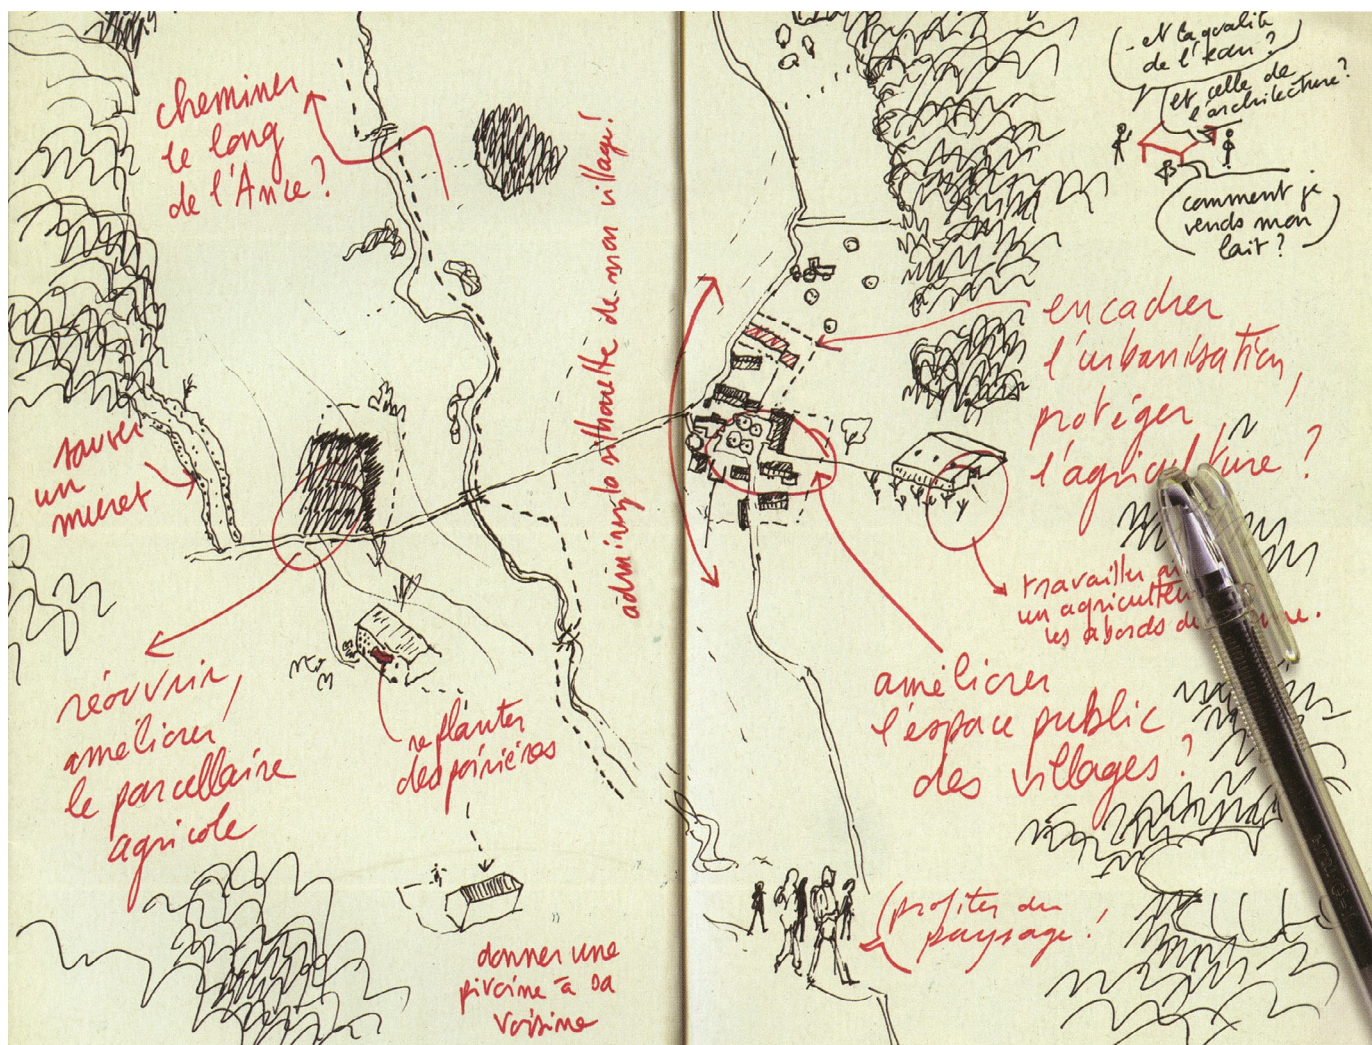 cheminer
le long
de l'Ance ?
sauver
un
muret
réouvrir,
améliorer
le parcellaire
agricole
replanter
des poiriers
donner une
pivoine à sa
voisine
admirer la silhouette de mon village !
- et la qualité
de l'eau ?
et celle de
l'architecture ?
comment je
vends mon
lait ?
encadrer
l'urbanisation,
protéger
l'agriculture ?
travailler
un agriculteu
les abords
améliorer
l'espace public
des villages ?
profiter du
paysage !